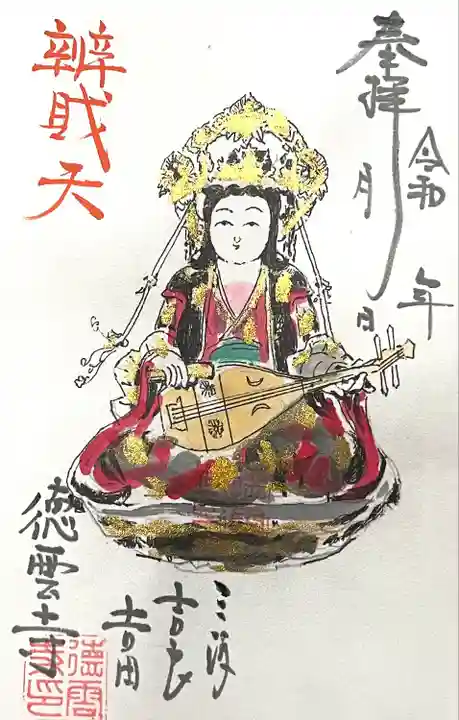 奉拝
令和 年
月 日
辨財天
三河
吉良
吉田
徳雲寺